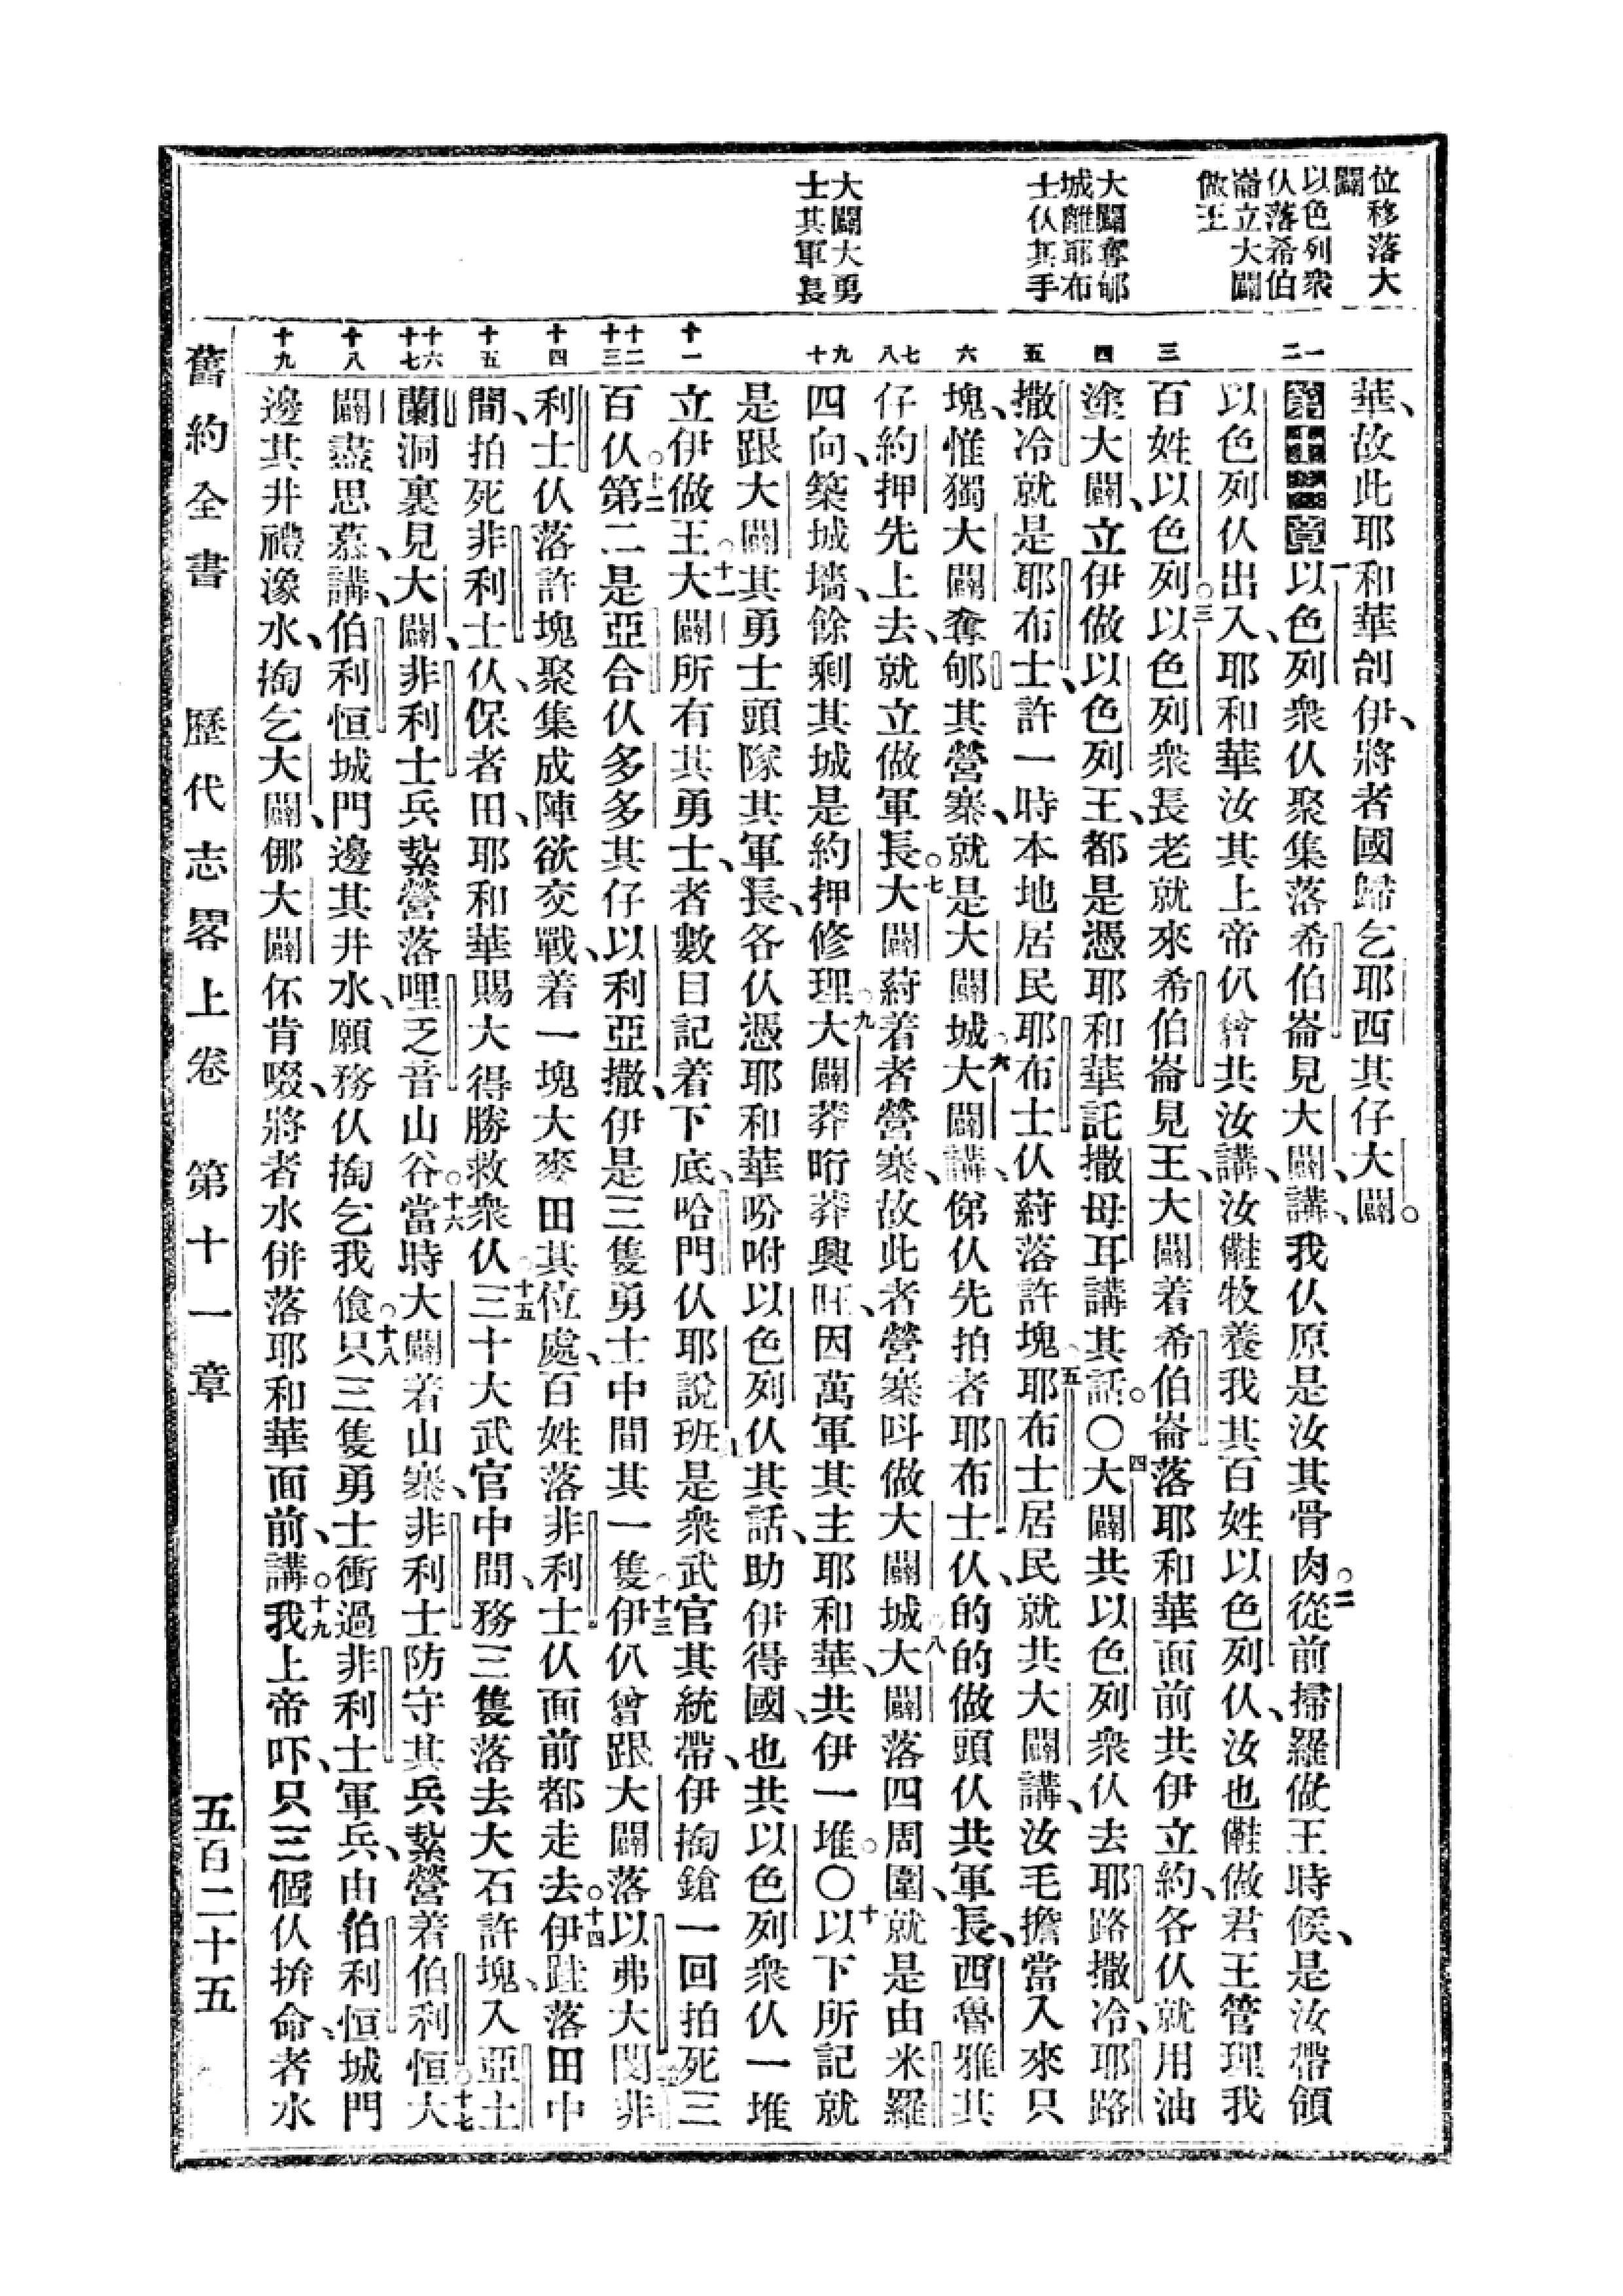 位移落大
闢
以色列衆
仫落希伯
崙立大闢
做王
大闢奪郇
城離耶布
士仫其手
大闢大勇
士其軍長
一
二
三
四
五
六
七
八
九
十
十一
十二
十三
十四
十五
十六
十七
十八
十九
華、故此耶和華刣伊、將者國歸乞耶西其仔大闢。
第十一章一以色列衆仫聚集落希伯崙見大闢、講、我仫原是汝其骨肉。二從前掃羅做王時候、是汝帶領
以色列仫出入、耶和華汝其上帝仈曾共汝講、汝㒕牧養我其百姓以色列仫、汝也㒕做君王管理我
百姓以色列。三以色列衆長老就來希伯崙見王、大闢着希伯崙落耶和華面前共伊立約、各仫就用油
塗大闢、立伊做以色列王、都是憑耶和華託撒母耳講其話。〇四大闢共以色列衆仫去耶路撒冷、耶路
撒冷就是耶布士、許一時本地居民耶布士仫蒔落許塊。五耶布士居民就共大闢講、汝毛擔當入來只
塊、惟獨大闢奪郇其營寨、就是大闢城。六大闢講、俤仫先拍者耶布士仫、的的做頭仫共軍長、西魯雅其
仔約押先上去、就立做軍長。七大闢蒔着者營寨、故此者營寨呌做大闢城。八大闢落四周圍、就是由米羅
四向、築城墻、餘剩其城是約押修理。九大闢莽𣍐莽興旺、因萬軍其主耶和華、共伊一堆。〇十以下所記就
是跟大闢其勇士頭隊其軍長、各仫憑耶和華吩咐以色列仫其話、助伊得國、也共以色列衆仫一堆
立伊做王。十一大闢所有其勇士、者數目記着下底、哈門仫耶說班是衆武官其統帶、伊掏鎗一回拍死三
百仫。十二第二是亞合仫多多其仔以利亞撒、伊是三隻勇士中間其一隻。十三伊仈曾跟大闢落以弗大閔、非
利士仫落許塊聚集成陣欲交戰、着一塊大麥田其位處、百姓落非利士仫面前都走去。十四伊跬落田中
間、拍死非利士仫、保者田、耶和華賜大得勝救衆仫。十五三十大武官中間、務三隻落去大石許塊、入亞土
蘭洞裏見大闢、非利士兵紮營落哩乏音山谷。十六當時大闢着山寨、非利士防守其兵、紮營着伯利恒。十七大
闢盡思慕、講、伯利恒城門邊其井水、願務仫掏乞我飡。十八只三隻勇士衝過非利士軍兵、由伯利恒城門
邊其井禮𣼟水、掏乞大闢、𠆧大闢伓肯啜、將者水併落耶和華面前、講。十九我上帝吓、只三個仫拚命、者水
舊約全書　歷代志畧上卷　第十一章　五百二十五